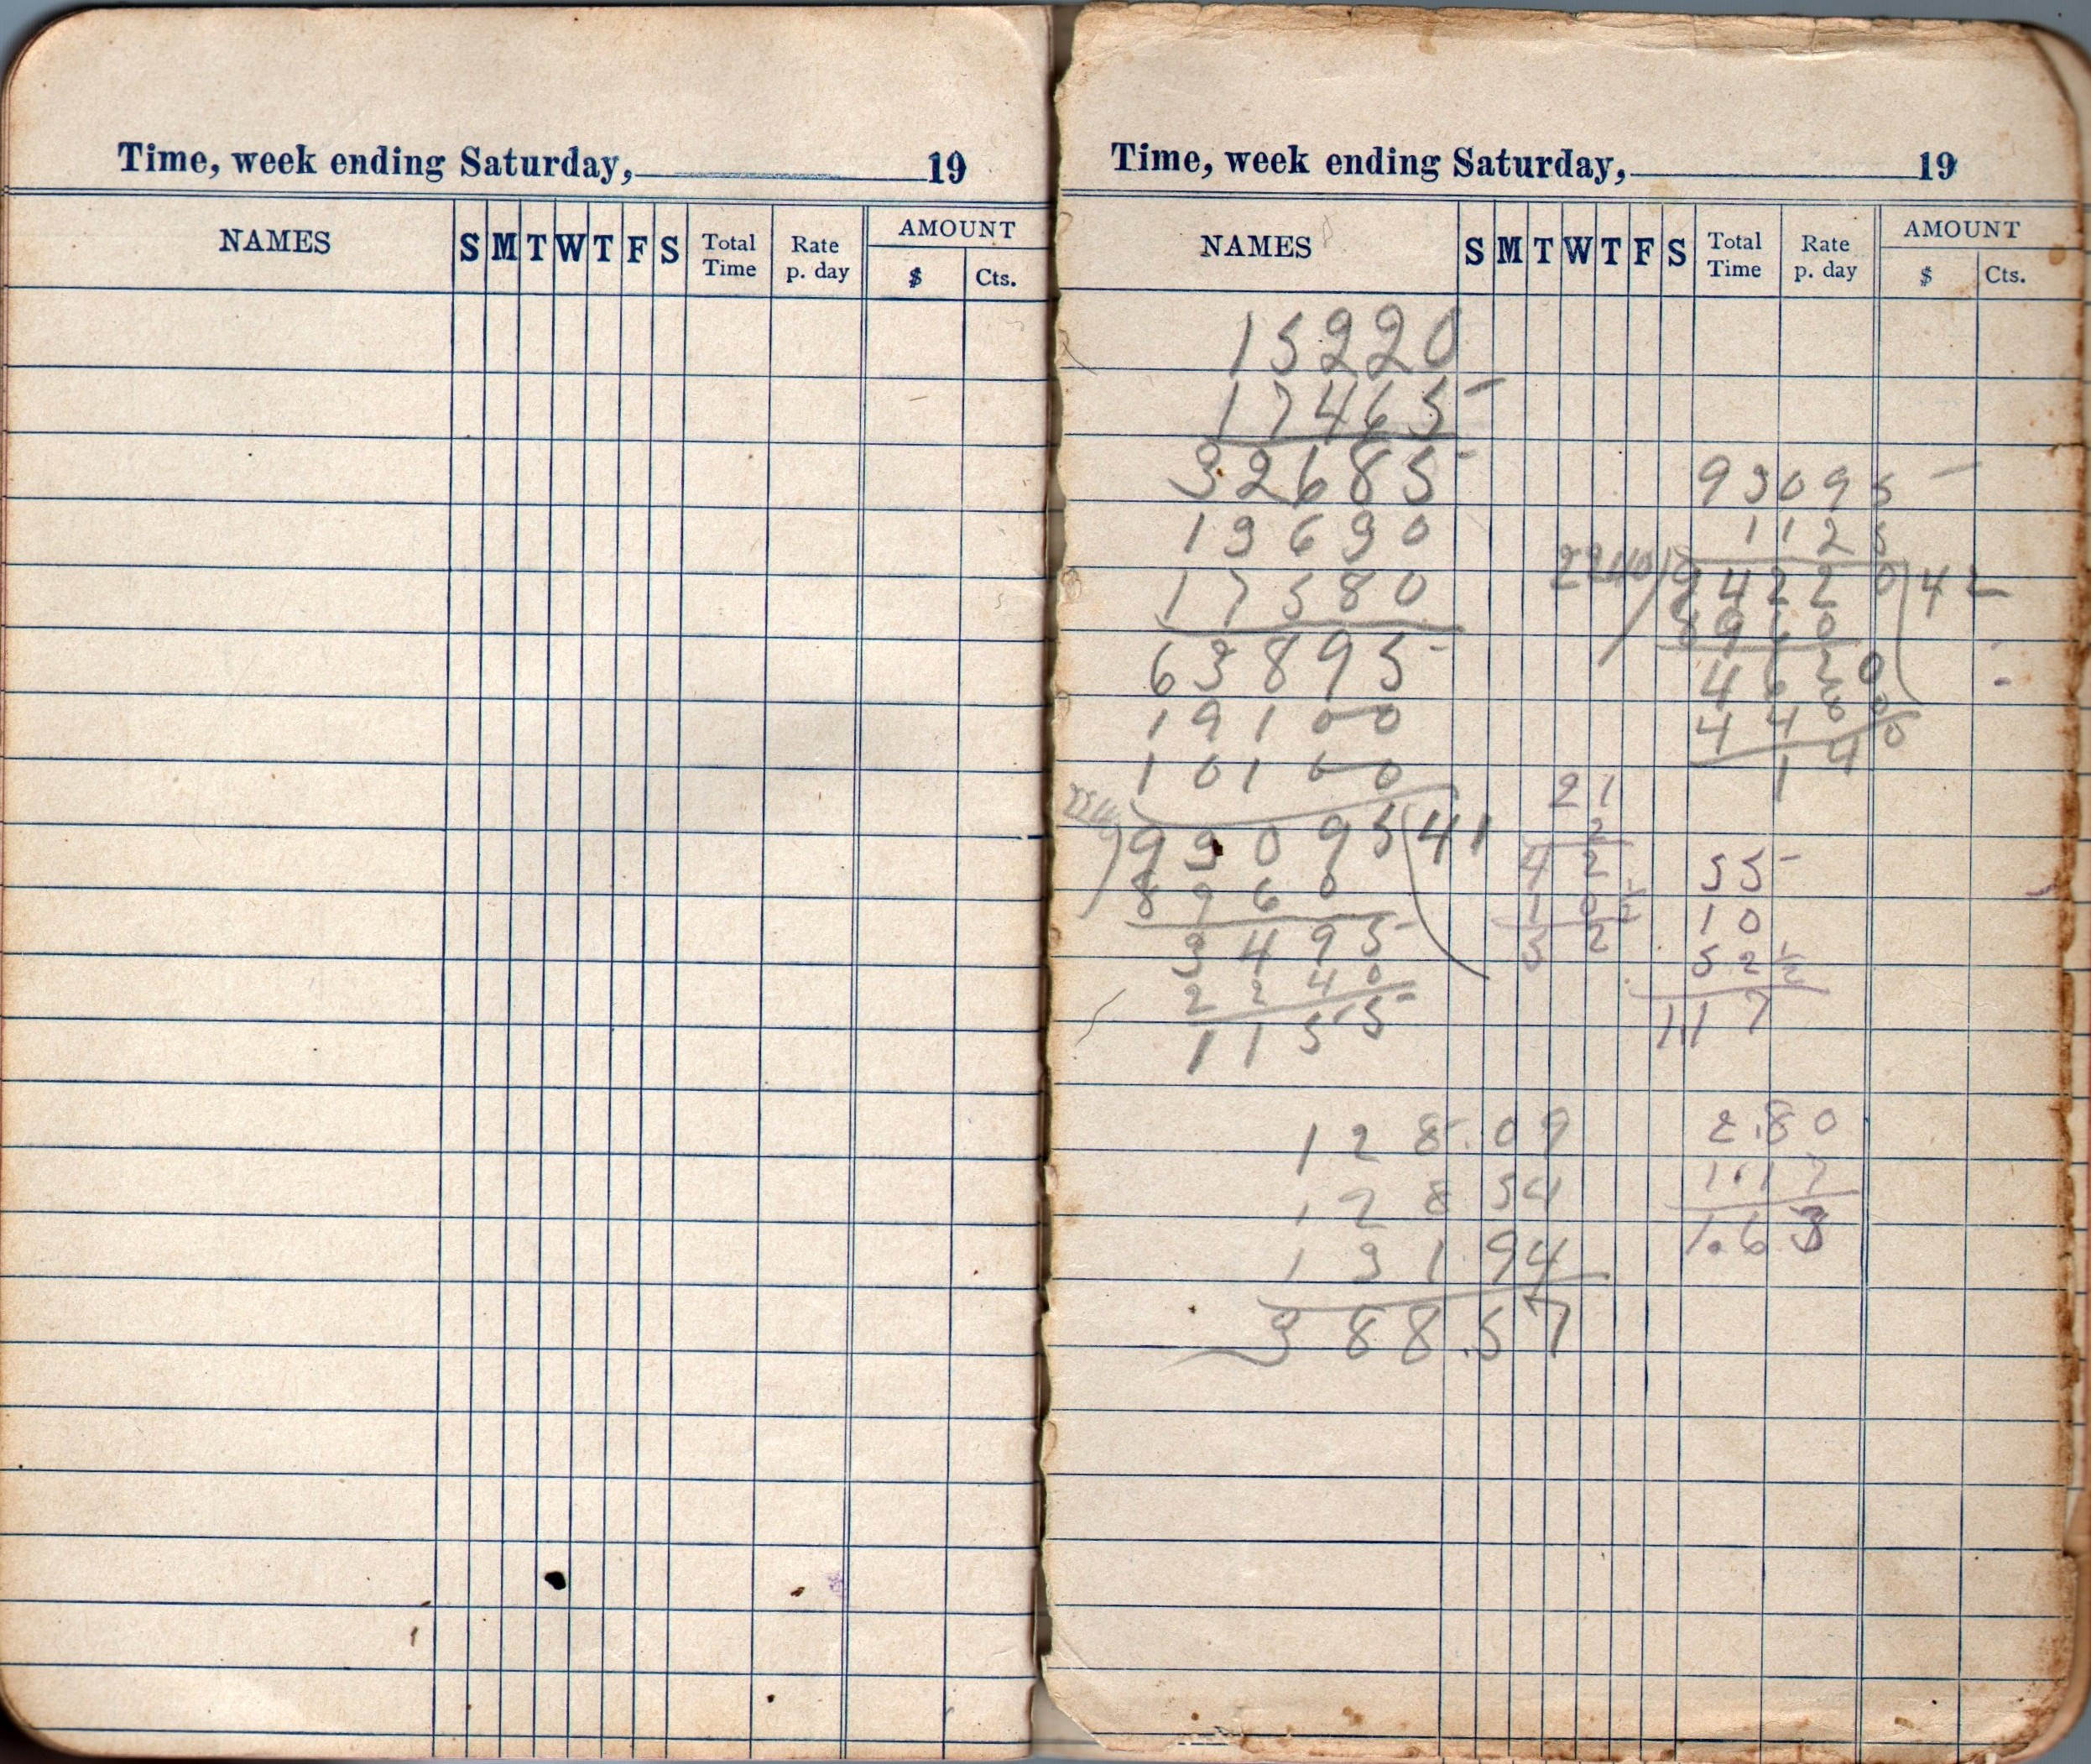 Time, week ending Saturday, 19
NAMES S M T W T F S Total Time Rate p. day AMOUNT $ Cts.
Time, week ending Saturday, 19
NAMES S M T W T F S Total Time Rate p. day AMOUNT $ Cts.
15220
17465
32685
13630
17580
63895
19100
10100
2240)93095(41
8960
3495
2240
1155
93095
1125
2240)94220(42
8960
4620
4480
140
21
2
42
10½
52
55
10
52½
117
128.09
128 54
131.94
388.57
2.80
1.17
1.63